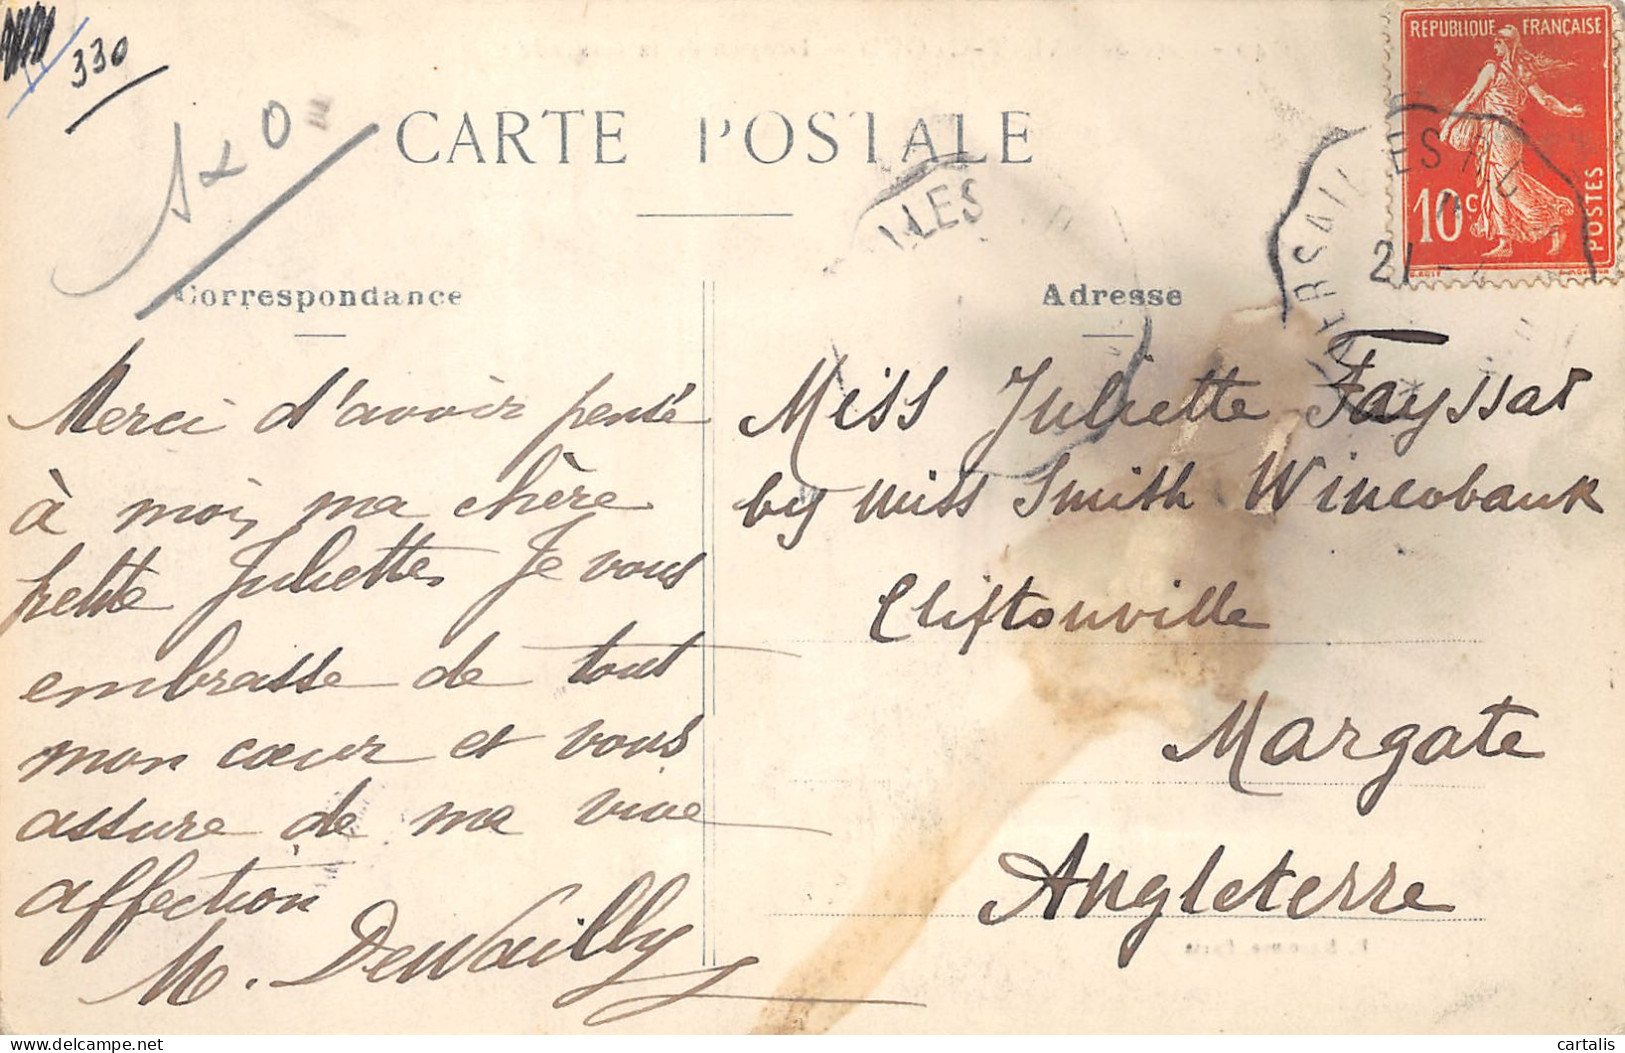 330
RÉPUBLIQUE FRANÇAISE
10c
POSTES
CARTE POSTALE
Correspondance
Adresse
21
Merci d'avoir pensé
à moi, ma chère
petite Juliette, Je vous
embrasse de tout
mon cœur et vous
assure de ma vive
affection
M. DeWailly
Miss Juliette Fayssat
by Miss Smith Wincobank
Cliftonville
Margate
Angleterre
cartalis